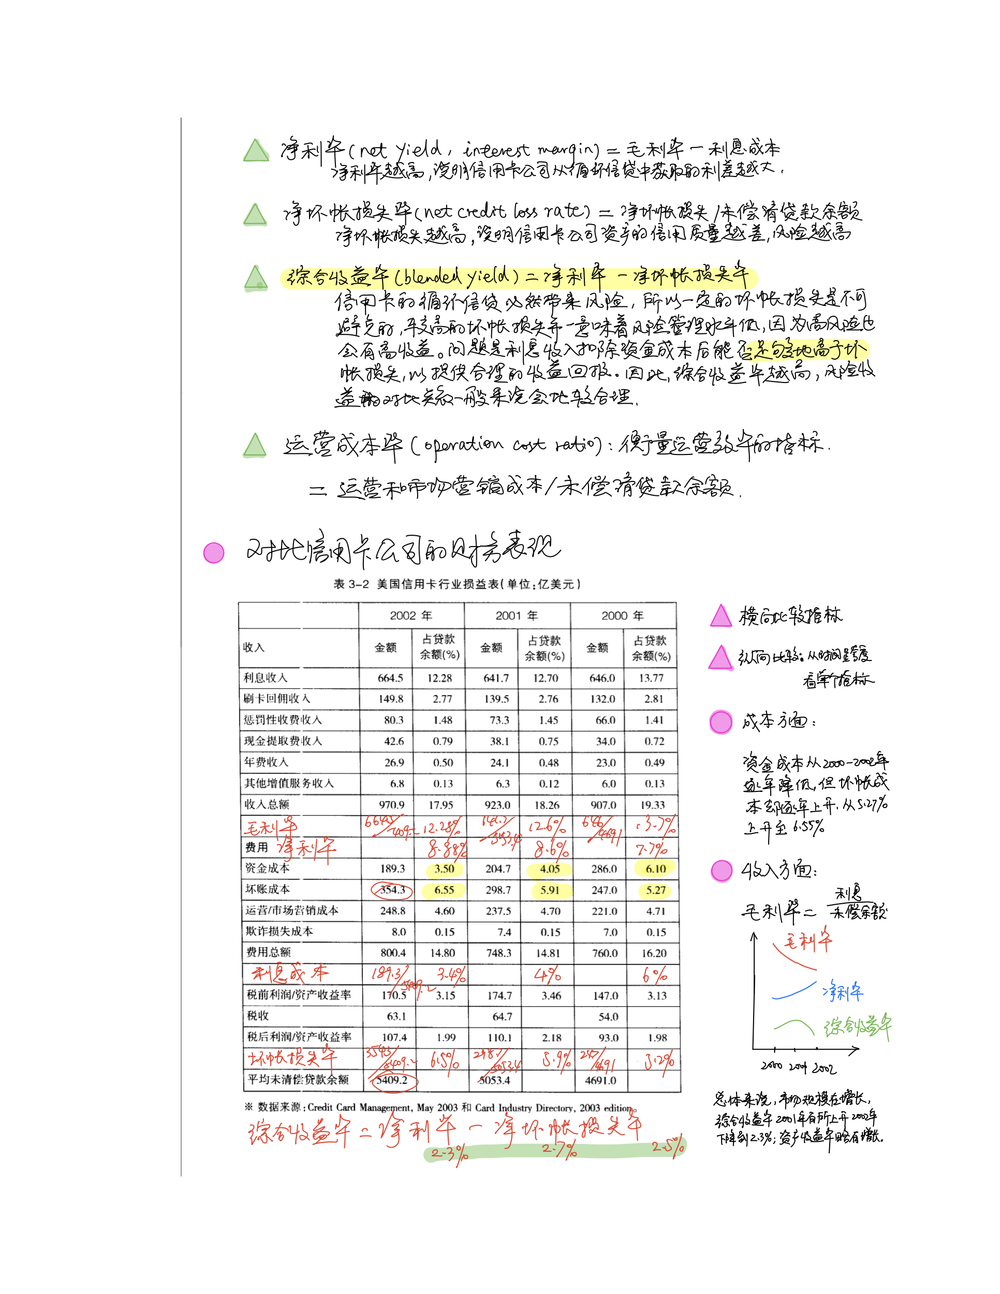 净利率(net yield, interest margin)=毛利率-利息成本
净利率越高,说明信用卡公司从循环信贷中获取的利差越大.
净坏帐损失率(net credit loss rate)=净坏帐损失/未偿清贷款余额
净坏帐损失越高,说明信用卡公司资产的信用质量越差,风险越高
综合收益率(blended yield)=净利率-净坏帐损失率
信用卡的循环信贷必然带来风险,所以一定的坏帐损失是不可
避免的,较高的坏帐损失并不意味着风险管理水平低,因为高风险也
会有高收益。问题是利息收入扣除资金成本后能否足够地高于坏
帐损失,以提供合理的收益回报。因此,综合收益率越高,风险收
益的对比关系一般来说会比较合理.
运营成本率(operation cost ratio):衡量运营效率的指标.
=运营和市场营销成本/未偿清贷款余额.
对比信用卡公司的财务表现
表 3-2 美国信用卡行业损益表(单位:亿美元)
2002 年 2001 年 2000 年
收入 金额 占贷款余额(%) 金额 占贷款余额(%) 金额 占贷款余额(%)
利息收入 664.5 12.28 641.7 12.70 646.0 13.77
刷卡回佣收入 149.8 2.77 139.5 2.76 132.0 2.81
惩罚性收费收入 80.3 1.48 73.3 1.45 66.0 1.41
现金提取费收入 42.6 0.79 38.1 0.75 34.0 0.72
年费收入 26.9 0.50 24.1 0.48 23.0 0.49
其他增值服务收入 6.8 0.13 6.3 0.12 6.0 0.13
收入总额 970.9 17.95 923.0 18.26 907.0 19.33
毛利率 12.28% 12.6%
费用 净利率 8.88% 8.6% 7.7%
资金成本 189.3 3.50 204.7 4.05 286.0 6.10
坏账成本 354.3 6.55 298.7 5.91 247.0 5.27
运营/市场营销成本 248.8 4.60 237.5 4.70 221.0 4.71
欺诈损失成本 8.0 0.15 7.4 0.15 7.0 0.15
费用总额 800.4 14.80 748.3 14.81 760.0 16.20
利息成本 189.3/5409.2 3.4% 4% 6%
税前利润/资产收益率 170.5 3.15 174.7 3.46 147.0 3.13
税收 63.1 64.7 54.0
税后利润/资产收益率 107.4 1.99 110.1 2.18 93.0 1.98
坏帐损失率 6.5% 5.9% 5.2%
平均未清偿贷款余额 5409.2 5053.4 4691.0
※ 数据来源:Credit Card Management, May 2003 和 Card Industry Directory, 2003 edition。
综合收益率=净利率-净坏帐损失率
2.3% 2.7% 2.5%
横向比较指标
纵向比较:从时间跨度
看单个指标
成本方面:
资金成本从2000-2002年
逐年降低,但坏帐成
本却逐年上升,从5.27%
上升至6.55%
收入方面:
毛利率=利息/未偿余额
毛利率
净利率
综合收益率
2000 2001 2002
总体来说,市场规模在增长,
综合收益率2001年有所上升2002年
下降到2.3%,资产收益率略有增长.